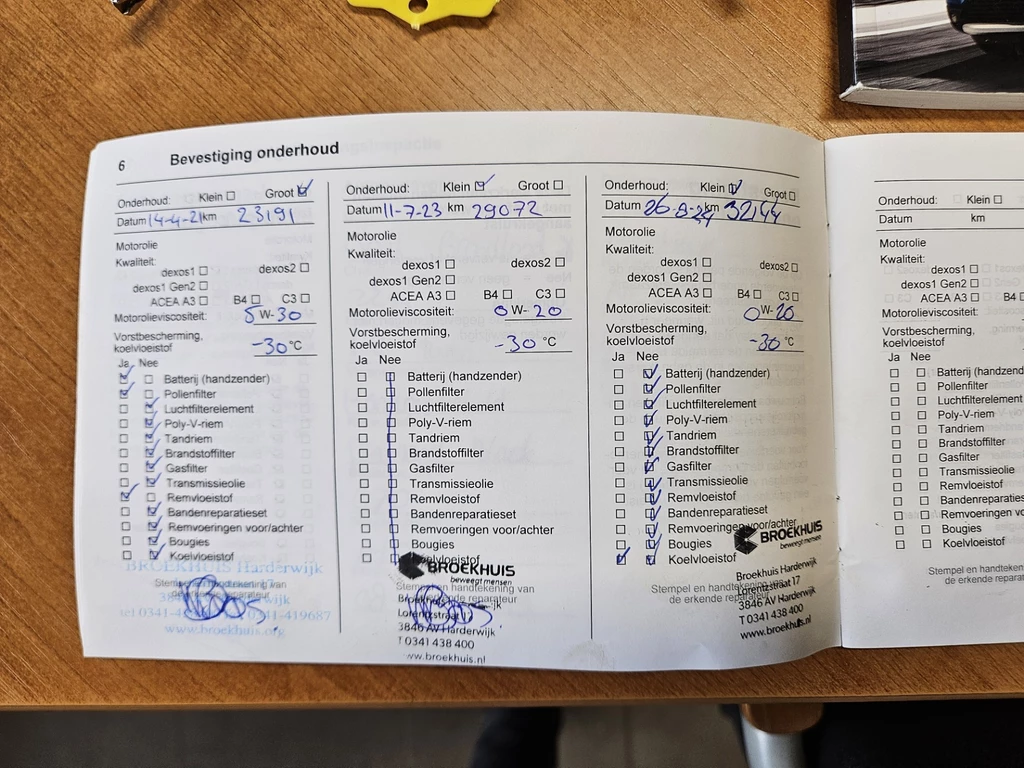 6 Bevestiging onderhoud
Onderhoud: Klein Groot
Datum 14-4-21 km 23191
Motorolie
Kwaliteit:
dexos1 dexos2
dexos1 Gen2
ACEA A3 B4 C3
Motorolieviscositeit: 5 W- 30
Vorstbescherming,
koelvloeistof -30 °C
Ja Nee
Batterij (handzender)
Pollenfilter
Luchtfilterelement
Poly-V-riem
Tandriem
Brandstoffilter
Gasfilter
Transmissieolie
Remvloeistof
Bandenreparatieset
Remvoeringen voor/achter
Bougies
Koelvloeistof
BROEKHUIS Harderwijk
Stempel en handtekening van
de erkende reparateur
0341-419687
www.broekhuis.org
Onderhoud: Klein Groot
Datum 11-7-23 km 29072
Motorolie
Kwaliteit:
dexos1 dexos2
dexos1 Gen2
ACEA A3 B4 C3
Motorolieviscositeit: 0 W- 20
Vorstbescherming,
koelvloeistof -30 °C
Ja Nee
Batterij (handzender)
Pollenfilter
Luchtfilterelement
Poly-V-riem
Tandriem
Brandstoffilter
Gasfilter
Transmissieolie
Remvloeistof
Bandenreparatieset
Remvoeringen voor/achter
Bougies
Koelvloeistof
BROEKHUIS
beweegt mensen
Stempel en handtekening van
de erkende reparateur
Lorentzstraat
3846 AV Harderwijk
T 0341 438 400
www.broekhuis.nl
Onderhoud: Klein Groot
Datum 26-8-24 km 32144
Motorolie
Kwaliteit:
dexos1 dexos2
dexos1 Gen2
ACEA A3 B4 C3
Motorolieviscositeit: 0 W- 20
Vorstbescherming,
koelvloeistof -30 °C
Ja Nee
Batterij (handzender)
Pollenfilter
Luchtfilterelement
Poly-V-riem
Tandriem
Brandstoffilter
Gasfilter
Transmissieolie
Remvloeistof
Bandenreparatieset
Remvoeringen voor/achter
Bougies
Koelvloeistof
BROEKHUIS
beweegt mensen
Stempel en handtekening van
de erkende reparateur
Broekhuis Harderwijk
Lorentzstraat 17
3846 AV Harderwijk
T 0341 438 400
www.broekhuis.nl
Onderhoud: Klein
Datum km
Motorolie
Kwaliteit:
dexos1
dexos1 Gen2
ACEA A3 B
Motorolieviscositeit:
Vorstbescherming,
koelvloeistof
Ja Nee
Batterij (handzende
Pollenfilter
Luchtfilterelement
Poly-V-riem
Tandriem
Brandstoffilter
Gasfilter
Transmissieolie
Remvloeistof
Bandenreparaties
Remvoeringen vo
Bougies
Koelvloeistof
Stempel en handteken
de erkende reparateur